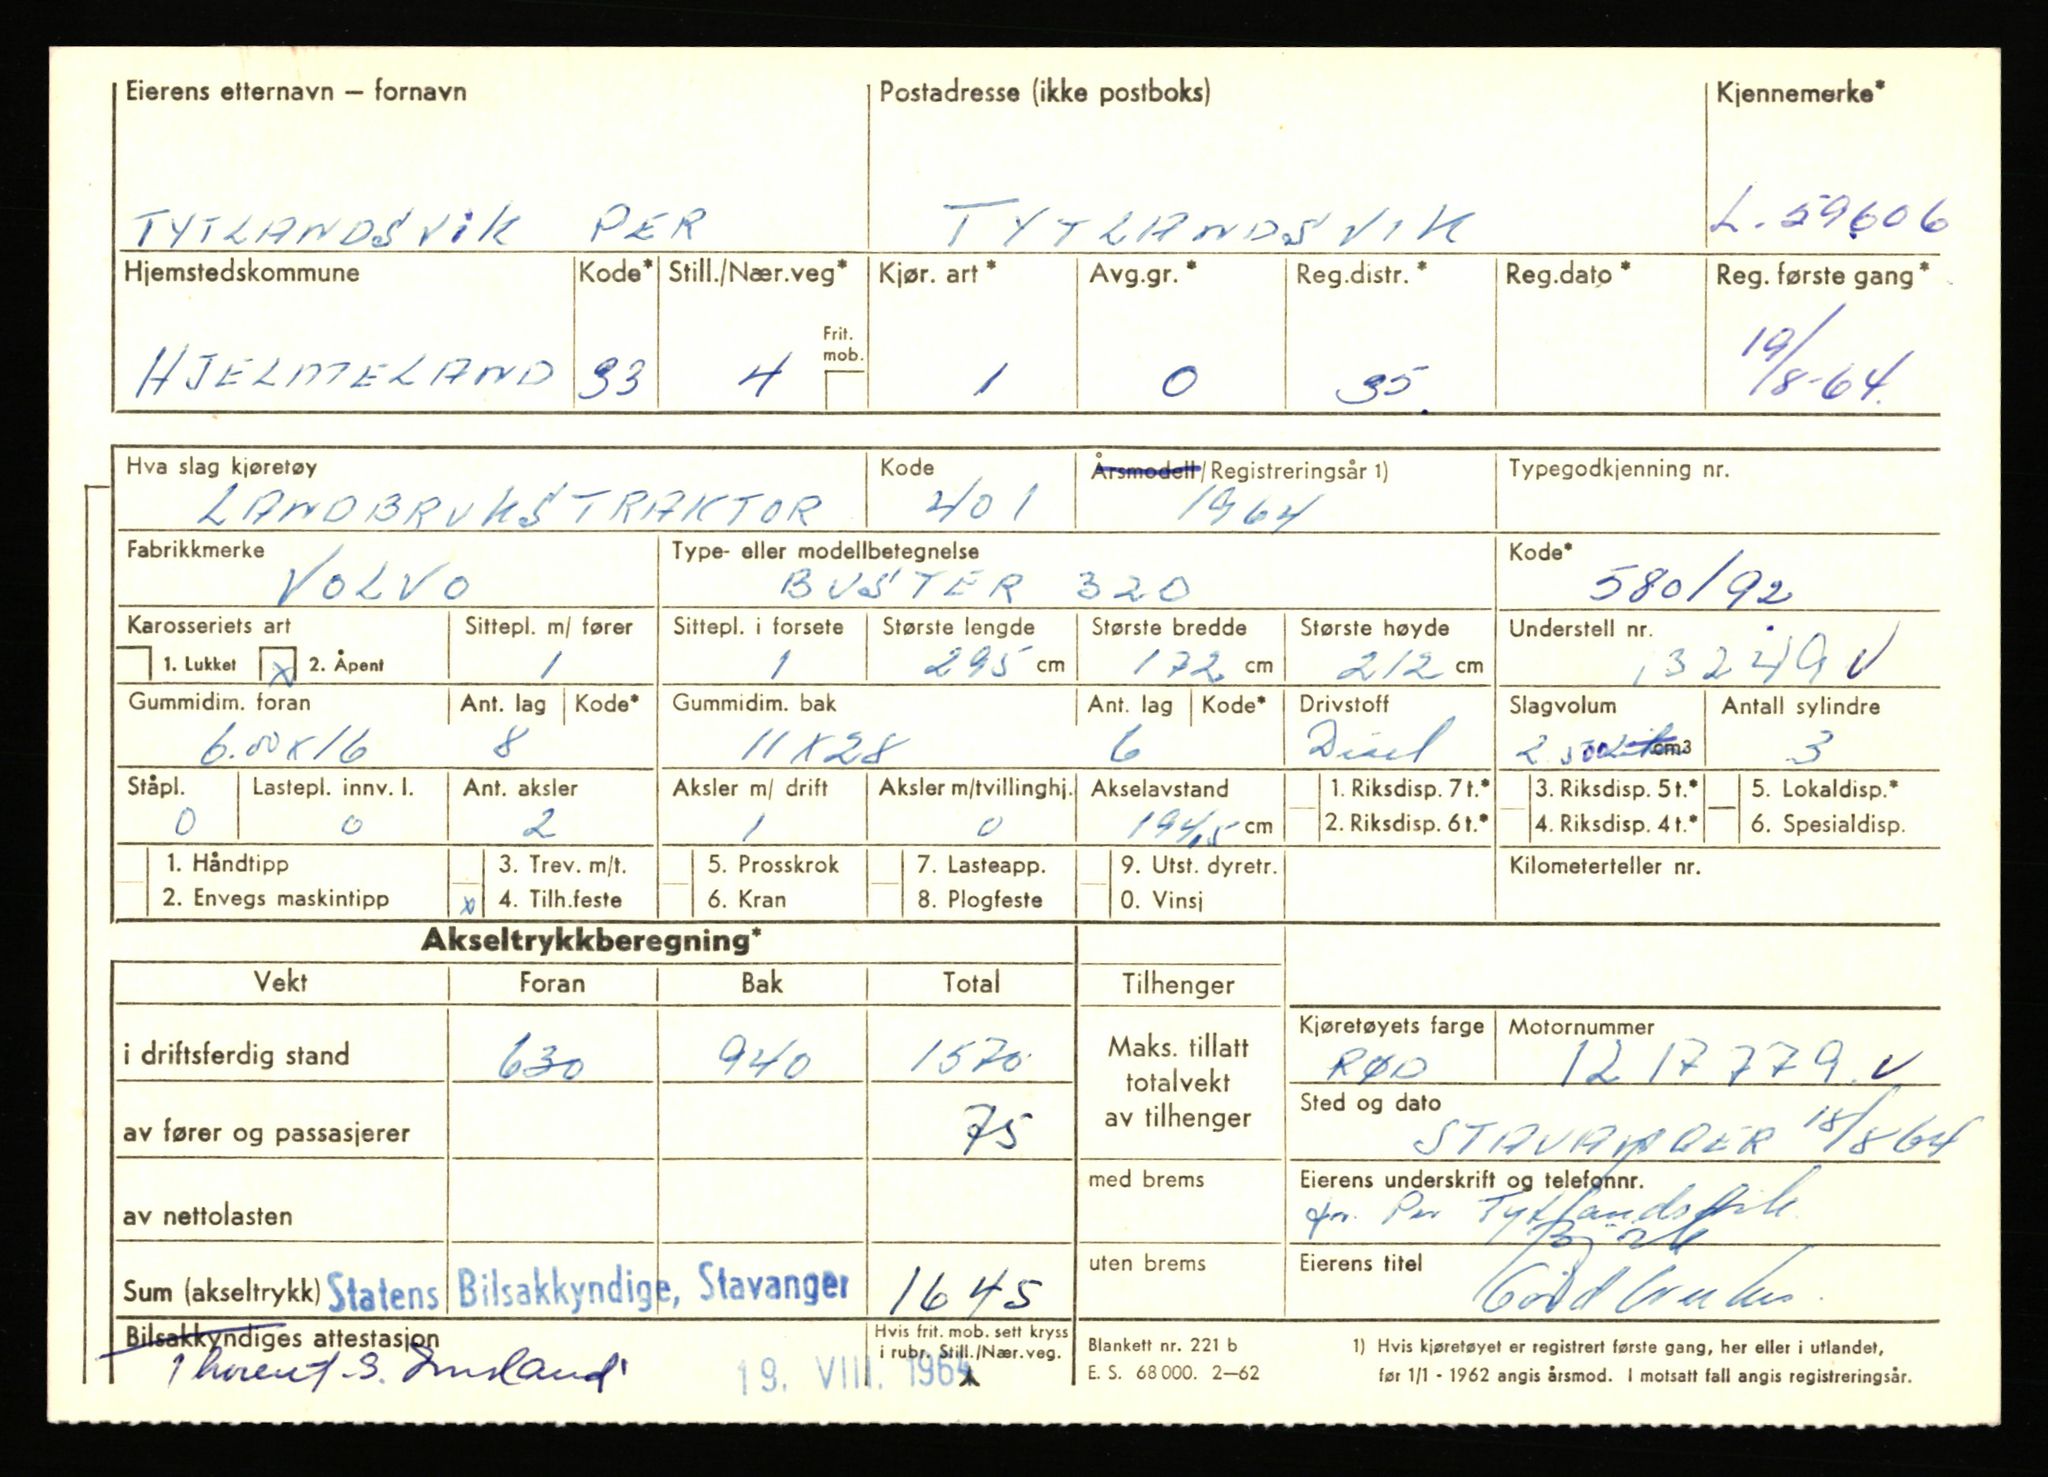 Eierens etternavn — fornavn Postadresse (ikke postboks) Kjennemerke*
TYTLANDSVIK PER TYTLANDSVIK L. 59606
Hjemstedskommune Kode* Still./Nær.veg* Kjør. art* Avg.gr.* Reg.distr.* Reg.dato* Reg. første gang*
Frit.
mob.
HJELMELAND 33 4 1 0 35. 19/8-64.
Hva slag kjøretøy Kode Årsmodell/Registreringsår 1) Typegodkjenning nr.
LANDBRUKSTRAKTOR 401 1964
Fabrikkmerke Type- eller modellbetegnelse Kode*
VOLVO BUSTER 320 580/92
Karosseriets art Sittepl. m/ fører Sittepl. i forsete Største lengde Største bredde Største høyde Understell nr.
1. Lukket x 2. Åpent 1 1 295 cm 172 cm 212 cm 13249 v
Gummidim. foran Ant. lag Kode* Gummidim. bak Ant. lag Kode* Drivstoff Slagvolum Antall sylindre
6.00 x 16 8 11 x 28 6 Disel cm3 3
Ståpl. Lastepl. innv. l. Ant. aksler Aksler m/ drift Aksler m/tvillinghj. Akselavstand 1. Riksdisp. 7 t.* 3. Riksdisp. 5 t.* 5. Lokaldisp.*
0 0 2 1 0 194,5 cm 2. Riksdisp. 6 t.* 4. Riksdisp. 4 t.* 6. Spesialdisp.
1. Håndtipp 3. Trev. m/t. 5. Prosskrok 7. Lasteapp. 9. Utst. dyretr. Kilometerteller nr.
2. Envegs maskintipp x 4. Tilh.feste 6. Kran 8. Plogfeste 0. Vinsj
Akseltrykkberegning*
Vekt Foran Bak Total Tilhenger
Kjøretøyets farge Motornummer
i driftsferdig stand 630 940 1570 Maks. tillatt totalvekt av tilhenger RØD 1217779. v
Sted og dato
av fører og passasjerer 75 STAVANGER 18/8 64
med brems Eierens underskrift og telefonnr.
av nettolasten Per Tytlandsvik
uten brems Eierens titel
Sum (akseltrykk) Statens Bilsakkyndige, Stavanger 1645 Gårdbruker.
Bilsakkyndiges attestasjon Hvis frit. mob. sett kryss Blankett nr. 221 b 1) Hvis kjøretøyet er registrert første gang, her eller i utlandet,
i rubr. Still./Nær.veg.
19. VIII. 1964 E. S. 68 000. 2—62 før 1/1 - 1962 angis årsmod. I motsatt fall angis registreringsår.